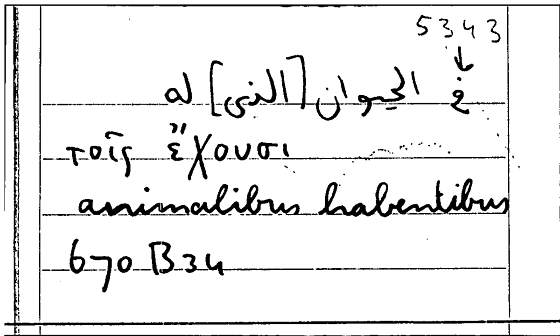 5343
في الحيوان [الذى] له
τοῖς ἔχουσι
animalibus habentibus
670 B34